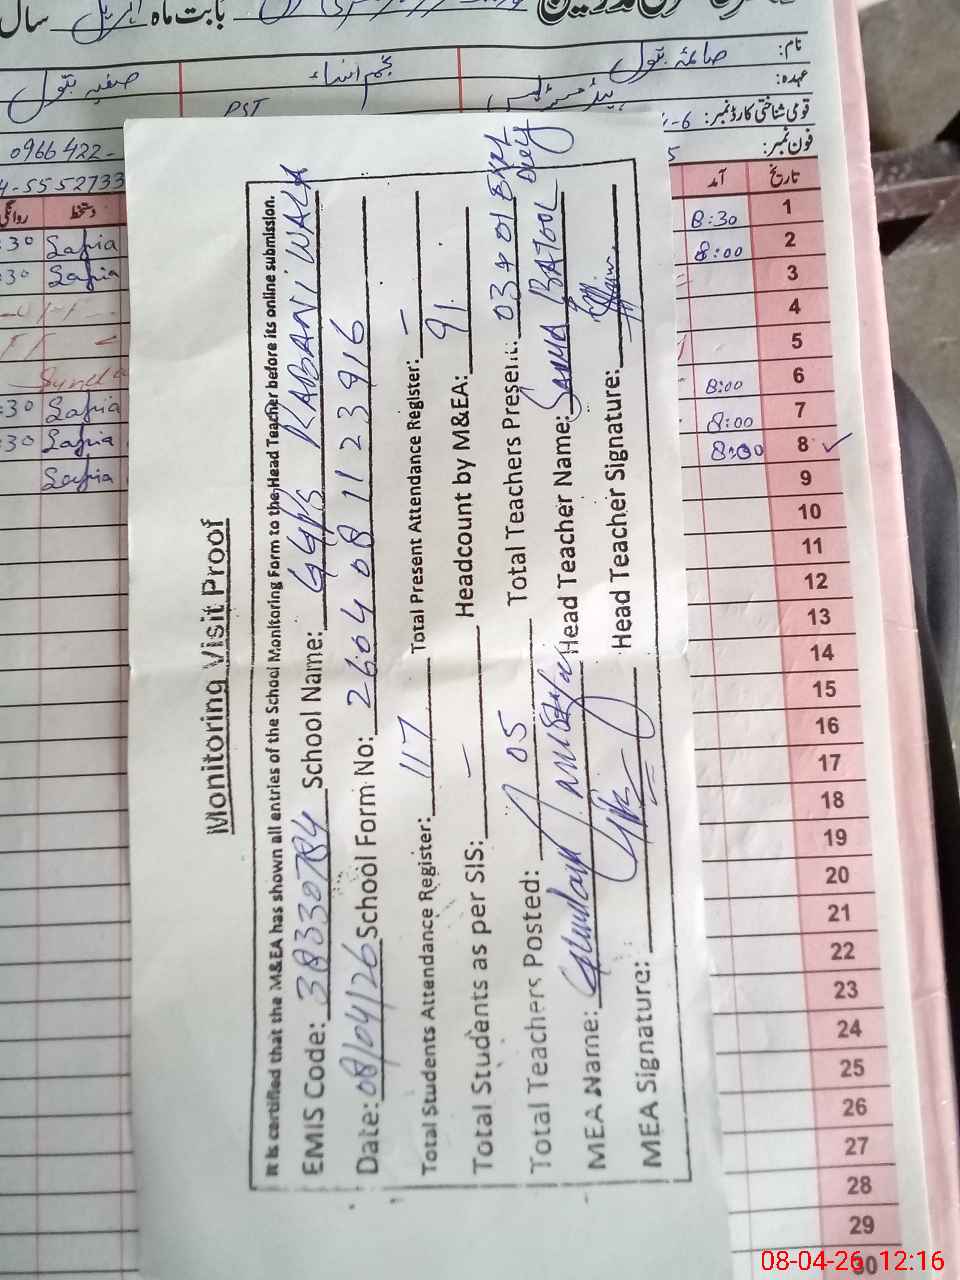 بابت ماہ اپریل سال
نام: صائمہ بتول نجم النساء صفیہ بتول
عہدہ: ہیڈ مسٹریس PST
قومی شناختی کارڈ نمبر: 6-
فون نمبر: 5
0966422-
4-5552733
تاریخ آمد
دستخط روانگی
1 8:30
2 8:00
3
4
5
6 8:00
7 8:00
8 8:00 ✓
9
10
11
12
13
14
15
16
17
18
19
20
21
22
23
24
25
26
27
28
29
30
:30 Safia
:30 Safia
Sunda
:30 Safia
:30 Safia
Safia
Monitoring Visit Proof
It is certified that the M&EA has shown all entries of the School Monitoring Form to the Head Teacher before its online submission.
EMIS Code: 38330784 School Name: GGPS RABANI WALA
Date: 08/04/26 School Form No: 2604081123916
Total Students Attendance Register: 117 Total Present Attendance Register: –
Total Students as per SIS: – Headcount by M&EA: 91
Total Teachers Posted: 05 Total Teachers Present: 03+01
MEA Name: Head Teacher Name: SAIMA BATOOL
MEA Signature: Head Teacher Signature:
08-04-26 12:16